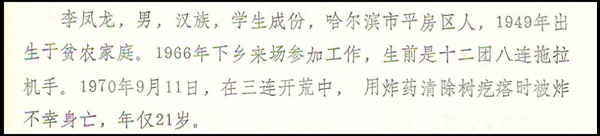 李凤龙，男，汉族，学生成份，哈尔滨市平房区人，1949年出
生于贫农家庭。1966年下乡来场参加工作，生前是十二团八连拖拉
机手。1970年9月11日，在三连开荒中， 用炸药清除树疙瘩时被炸
不幸身亡，年仅21岁。